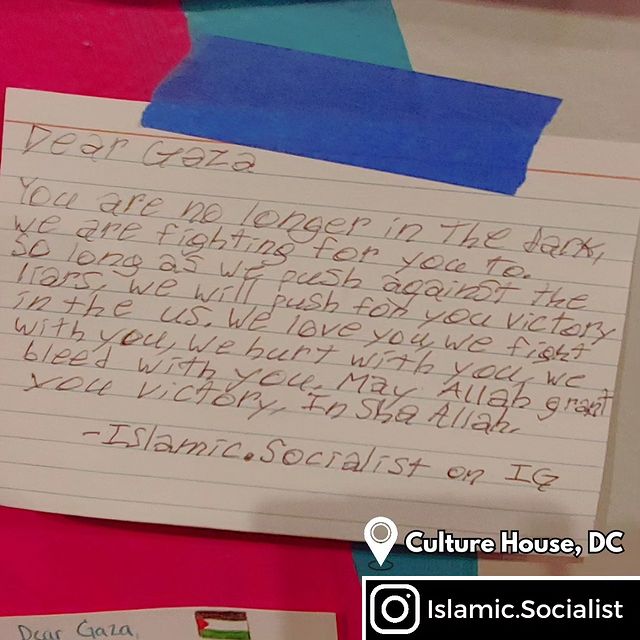 Dear Gaza
You are no longer in The dark,
we are fighting for you to.
So long as we push against the
liars, we will push for you victory
in the us. We love you, we fight
with you, we hurt with you, we
bleed with you. May Allah grant
you victory, InSha Allah.
-Islamic.Socialist on IG
Culture House, DC
Islamic.Socialist
Dear Gaza,